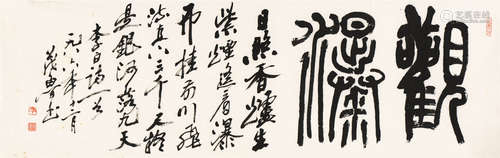 觀瀑
日照香爐生
紫煙遙看瀑
布挂前川飛
流直下三千尺疑
是銀河落九天
李白詩一首
年十二月
艺狐在线